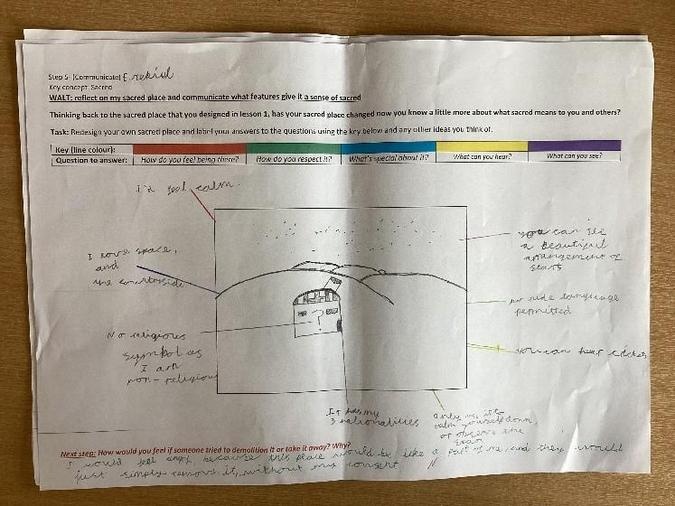 Step 5- [Communicate] Ezekiel
Key concept: Sacred
WALT: reflect on my sacred place and communicate what features give it a sense of sacred
Thinking back to the sacred place that you designed in lesson 1, has your sacred place changed now you know a little more about what sacred means to you and others?
Task: Redesign your own sacred place and label your answers to the questions using the key below and any other ideas you think of.
Key (line colour):
Question to answer: How do you feel being there? How do you respect it? What's special about it? What can you hear? What can you see?
I'd feel calm.
I love space,
and
the countryside
you can see
a beautiful
arrangement of
stars
no rude language
permitted
No religious
symbol as
I am
non-religious
?
you can hear
It has my
3 nationalities
only use
calm yourself down,
or observe the
Next step: How would you feel if someone tried to demolish it or take it away? Why?
I would feel angry because this place would be like a part of me, and they would
just simply remove it, without my consent